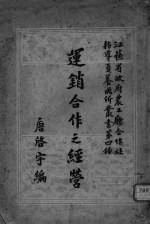 江蘇省政府農工廳合作社
指導員養成所叢書第四種
運銷合作之經營
唐啓宇編